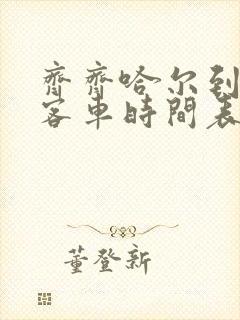 齊齊哈尔到
客車時間表
董登新